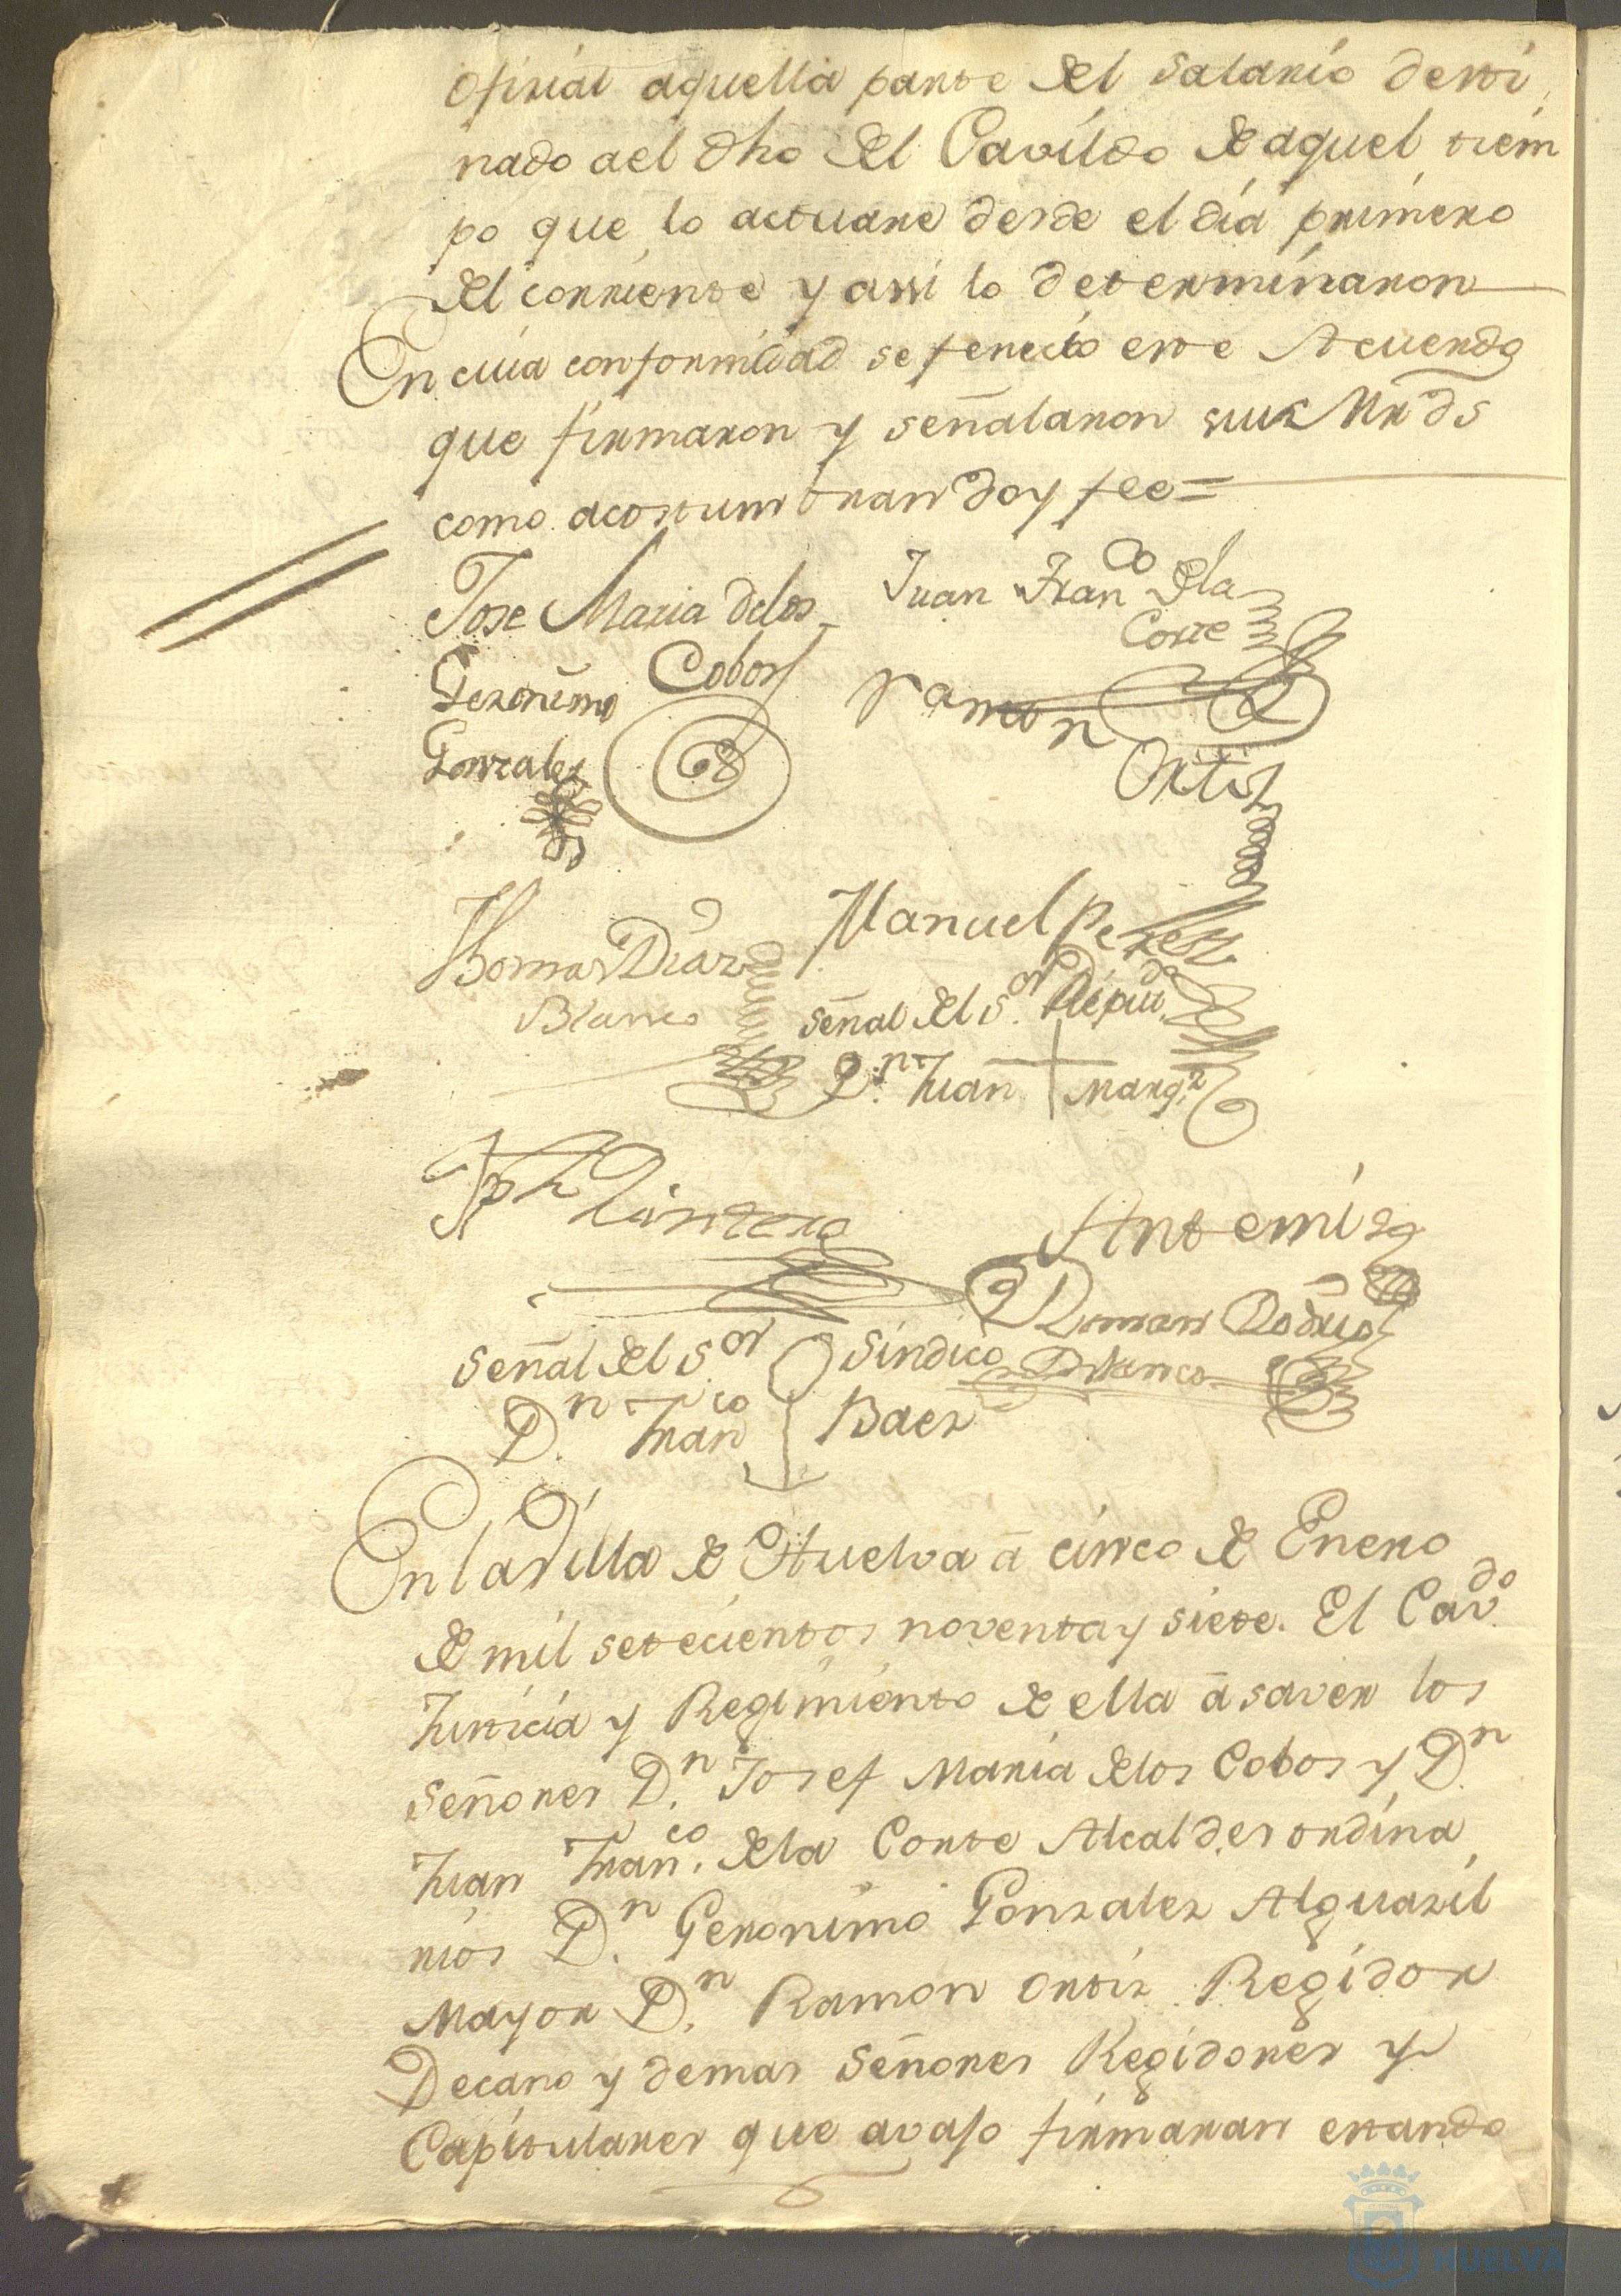 oficial aquella parte del salario desti,
nado a el dho del Cavildo de aquel tiem
po que lo actuare desde el dia primero
del corriente y assi lo determinaron
En cuia conformidad se fenecio este Acuerdo
que firmaron y señalaron sus Mrds
como acostumbran doy fee=
Jose Maria delos Cobos
Juan Franco dela Corte
Geronimo Gonzalez
Ramon Ortiz
Thomas Diaz Blanco
Manuel Perez
Señal del Sor Dipudo
Dn. Juan Marqz
Jph Quintero
Antemi
Roman Rodrio Blanco
Señal del Sor Sindico
Dn. Franco Baez
En la Villa de Huelva â cinco de Enero
de mil setecientos noventa y siete. El Cavdo.
Justicia y Regimiento de ella â saver los
Señores Dn. Josef Maria delos Cobos y Dn.
Juan Franco. dela Corte Alcaldes ordina,
rios Dn. Geronimo Gonzalez Alguazil
Mayor Dn. Ramon Ortiz Regidor
Decano y demas Señores Regidores y
Capitulares que avajo firmaran estando
HUELVA